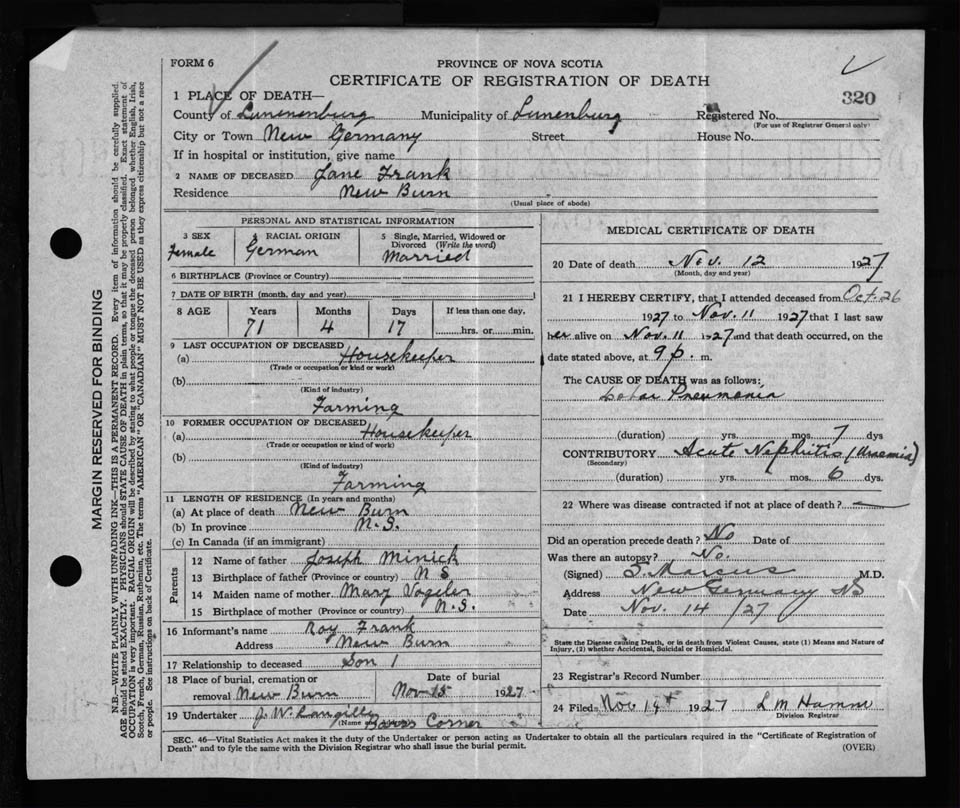 FORM 6
PROVINCE OF NOVA SCOTIA
CERTIFICATE OF REGISTRATION OF DEATH
320
1 PLACE OF DEATH—
County of Lunenburg Municipality of Lunenburg Registered No.
(For use of Registrar General only)
City or Town New Germany Street House No.
If in hospital or institution, give name
2 NAME OF DECEASED Jane Frank
Residence New Burn
(Usual place of abode)
PERSONAL AND STATISTICAL INFORMATION
3 SEX 4 RACIAL ORIGIN 5 Single, Married, Widowed or
Divorced (Write the word)
Female German Married
6 BIRTHPLACE (Province or Country)
7 DATE OF BIRTH (month, day and year)
8 AGE Years Months Days If less than one day,
71 4 17 hrs. or min.
9 LAST OCCUPATION OF DECEASED
(a) Housekeeper
(Trade or occupation or kind or work)
(b)
(Kind of industry)
Farming
10 FORMER OCCUPATION OF DECEASED
(a) Housekeeper
(Trade or occupation or kind of work)
(b)
(Kind of industry)
Farming
11 LENGTH OF RESIDENCE (In years and months)
(a) At place of death New Burn
(b) In province N.S.
(c) In Canada (if an immigrant)
Parents
12 Name of father Joseph Minick
13 Birthplace of father (Province or country) N S
14 Maiden name of mother Mary Vogeler
15 Birthplace of mother (Province or country) N.S.
16 Informant's name Roy Frank
Address New Burn
17 Relationship to deceased Son
18 Place of burial, cremation or Date of burial
removal New Burn Nov 15 1927
19 Undertaker J. W. Langille
Corner
MEDICAL CERTIFICATE OF DEATH
20 Date of death Nov. 12 1927
(Month, day and year)
21 I HEREBY CERTIFY, that I attended deceased from Oct. 26
1927 to Nov. 11 1927 that I last saw
her alive on Nov. 11 1927 and that death occurred, on the
date stated above, at 9 p. m.
The CAUSE OF DEATH was as follows:
Lobar Pneumonia
(duration) yrs. mos. 7 dys
CONTRIBUTORY Acute Nephritis (Uraemia)
(Secondary)
(duration) yrs. mos. 6 dys.
22 Where was disease contracted if not at place of death?
Did an operation precede death? No Date of
Was there an autopsy? No.
(Signed) S. Marcus M.D.
Address New Germany NS
Date Nov. 14 /27
State the Disease causing Death, or in death from Violent Causes, state (1) Means and Nature of
Injury, (2) whether Accidental, Suicidal or Homicidal.
23 Registrar's Record Number
24 Filed Nov 19 1927 L M Hamm
Division Registrar
SEC. 46—Vital Statistics Act makes it the duty of the Undertaker or person acting as Undertaker to obtain all the particulars required in the "Certificate of Registration of
Death" and to fyle the same with the Division Registrar who shall issue the burial permit.
(OVER)
MARGIN RESERVED FOR BINDING
N.B.—WRITE PLAINLY WITH UNFADING INK—THIS IS A PERMANENT RECORD. Every item of information should be carefully supplied.
AGE should be stated EXACTLY. PHYSICIANS should STATE CAUSE OF DEATH in plain terms, so that it may be properly classified. Exact statement of
OCCUPATION is very important. RACIAL ORIGIN will be described by stating to what people or tongue the deceased person belonged, whether English, Irish,
Scotch, French, German, Russian, Ruthenian, etc. The terms "AMERICAN" OR "CANADIAN" MUST NOT BE USED as they express citizenship but not a race
or people. See instructions on back of Certificate.